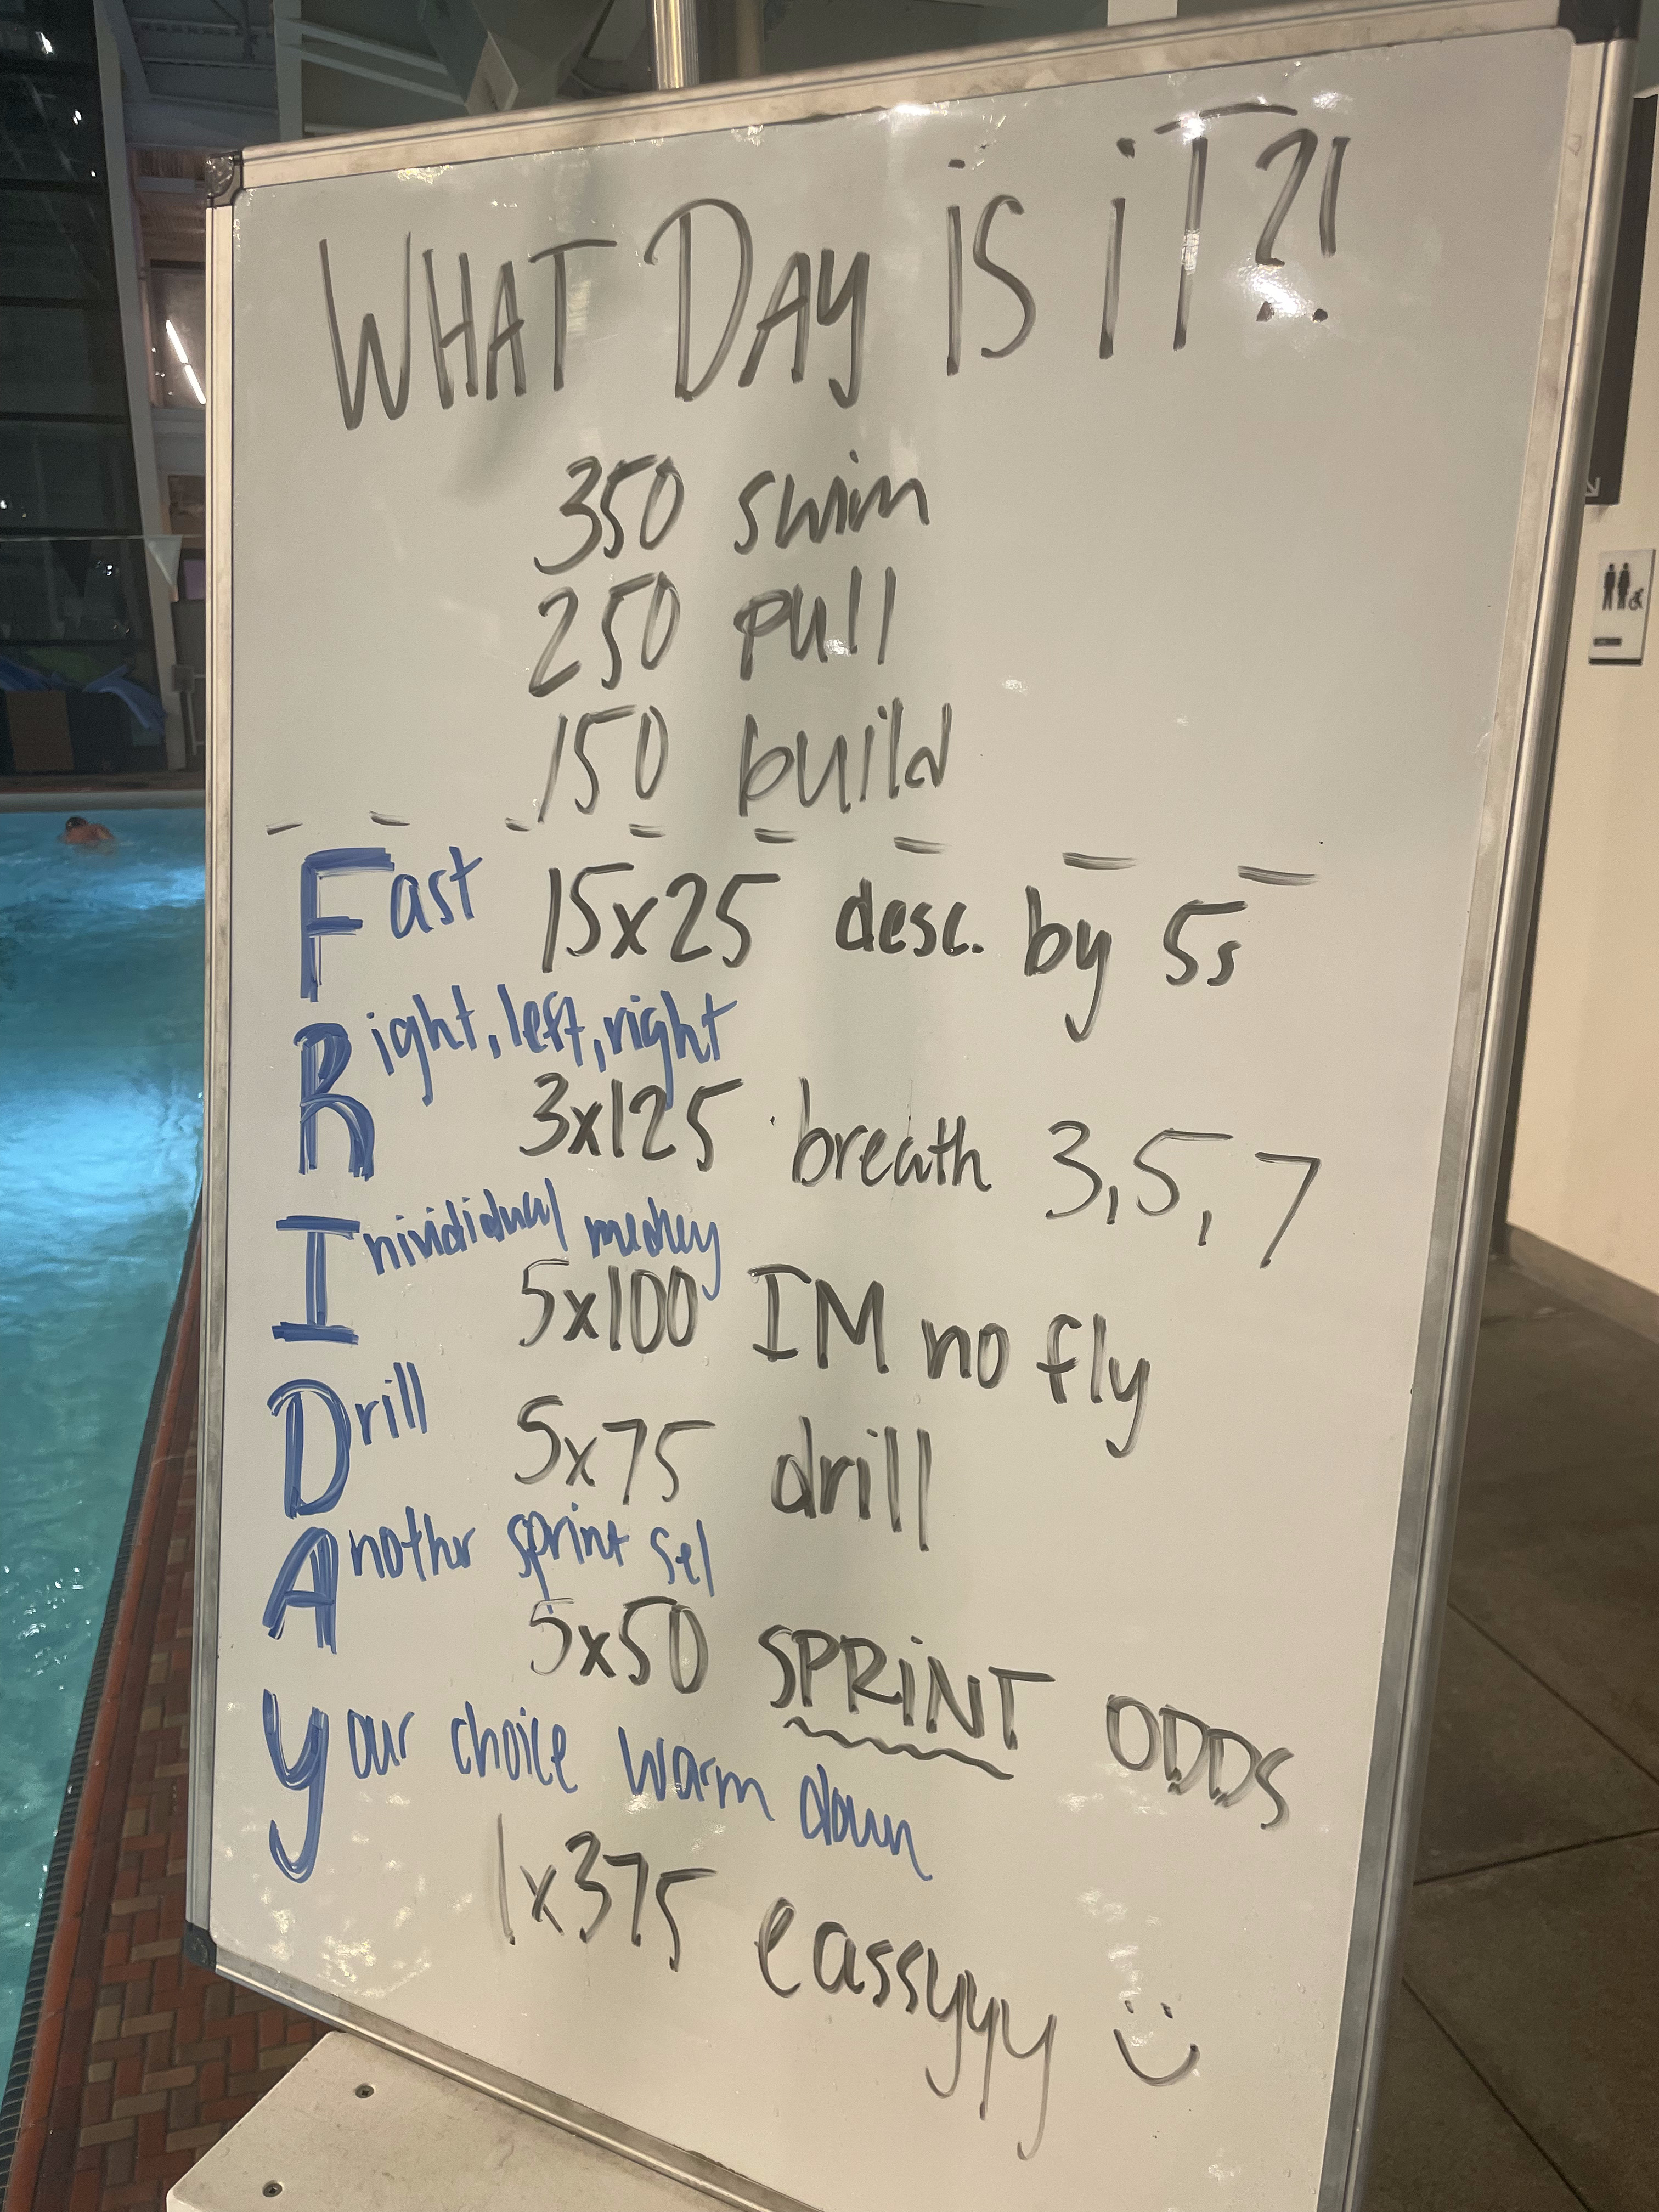 WHAT DAY iS iT?!
350 swim
250 pull
150 build
Fast 15x25 desc. by 5s
Right, left, right
3x125 breath 3,5,7
Inivididual medley
5x100 IM no fly
Drill
5x75 drill
Anothr sprint set
5x50 SPRiNT ODDS
Your choice warm down
1x375 eassyyy